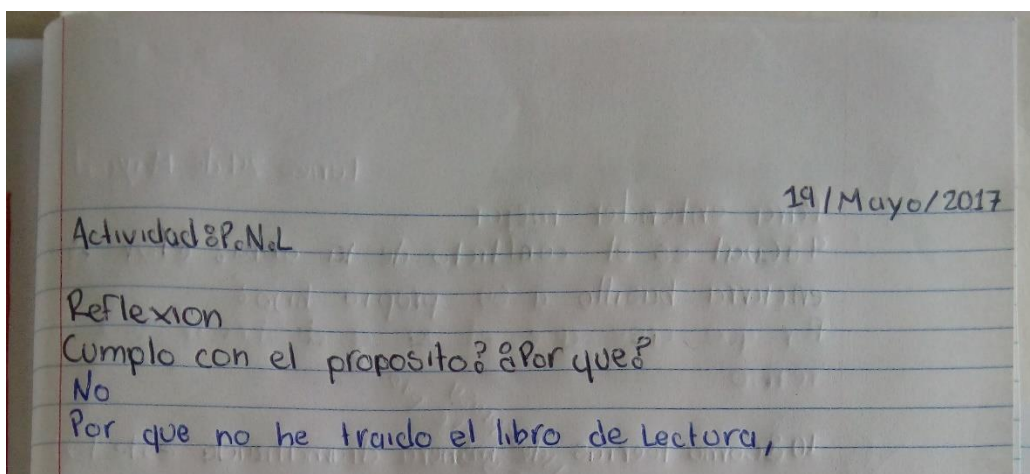 19/Mayo/2017
Actividad: P.N.L
Reflexion
Cumplo con el proposito? ¿Por que?
No
Por que no he traido el libro de Lectura,